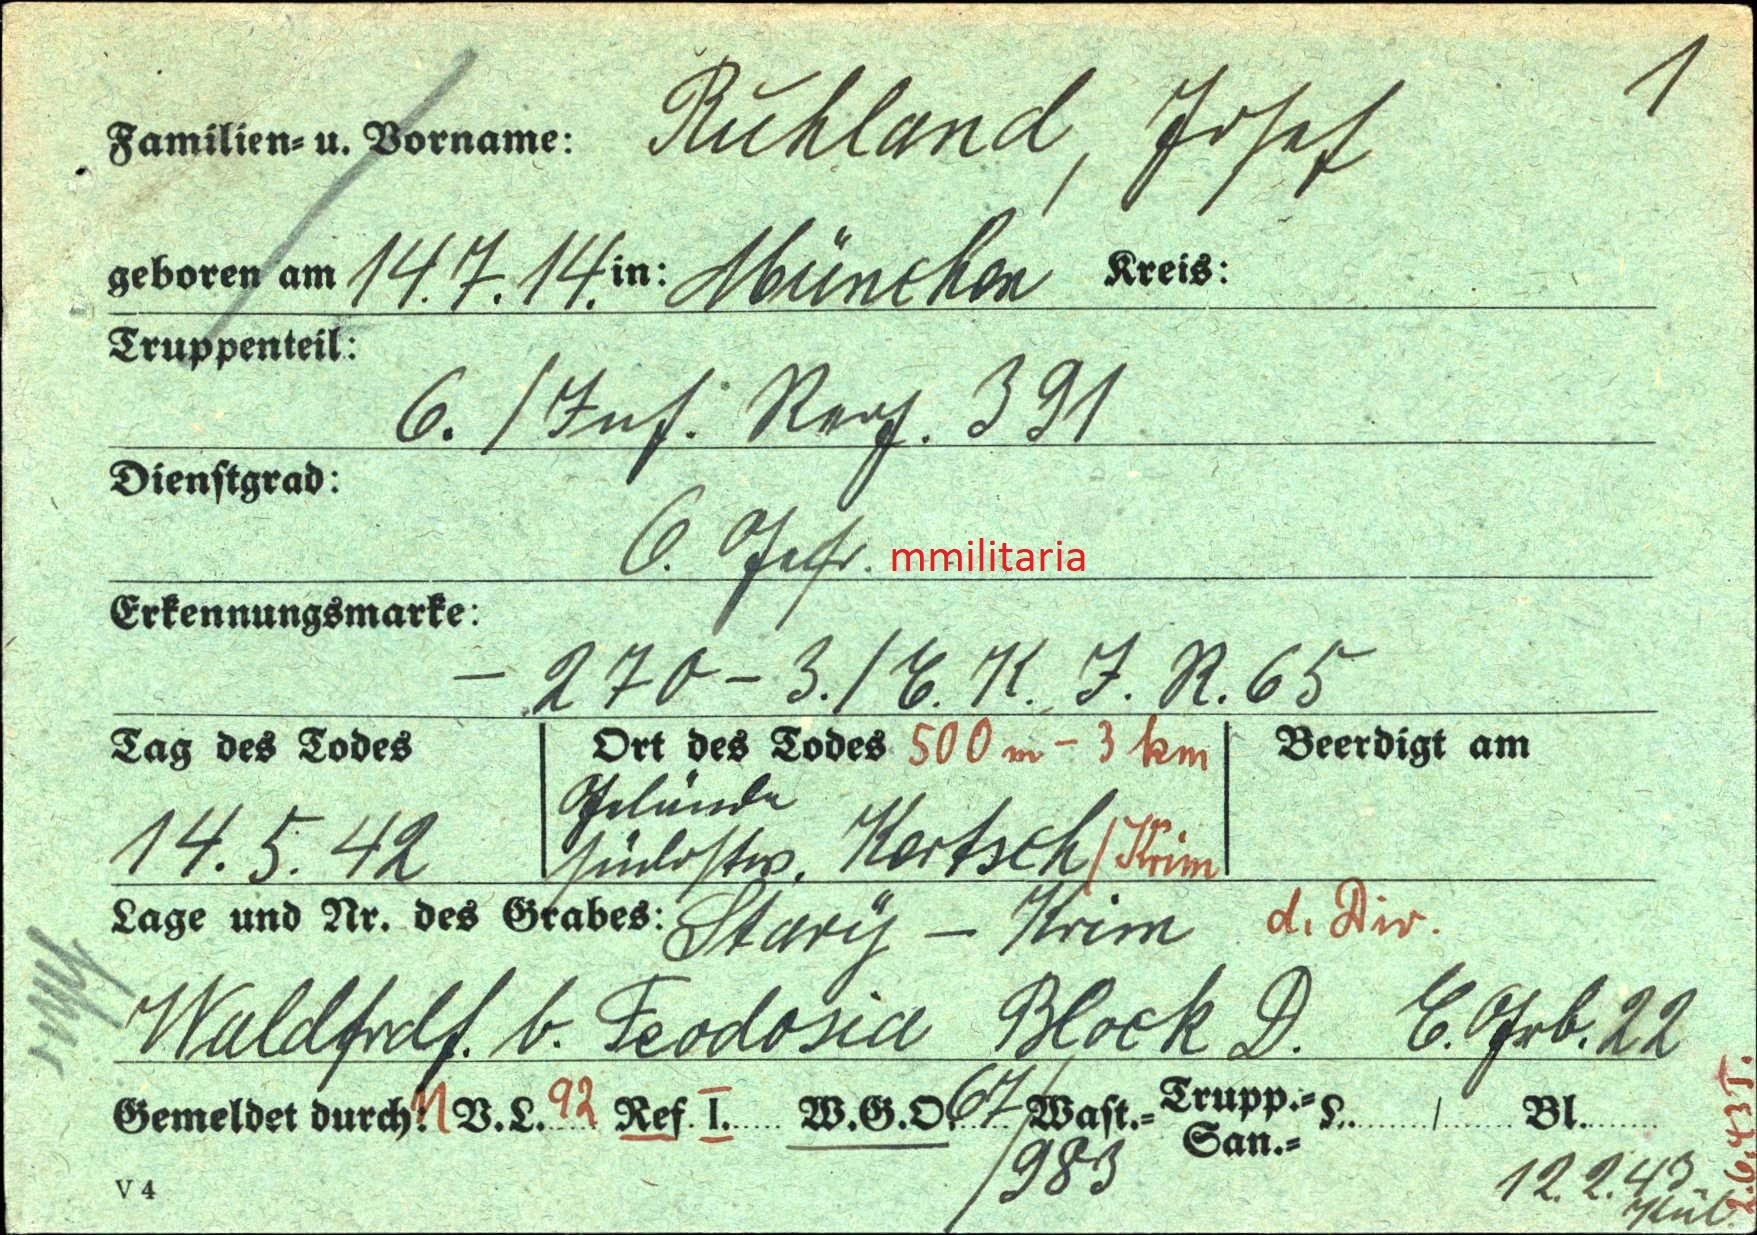 1
Familien- u. Vorname: Ruhland, Josef
geboren am 14.7.14. in: München Kreis:
Truppenteil:
6./Inf. Reg. 391
Dienstgrad:
O. Gefr. mmilitaria
Erkennungsmarke:
– 270 – 3./E. K. J. R. 65
Tag des Todes Ort des Todes 500 m – 3 km Beerdigt am
Gelände
14.5.42 südostw. Kertsch/Krim
Lage und Nr. des Grabes: Stary – Krim d. Div.
Waldfrdf. b. Feodosia Block D. E. Grb. 22
Gemeldet durch: V.L. 92 Ref. I. W.G.O. 67/983 Wast.- Trupp.- San.- L. / Bl.
V 4
12.2.43
2.6.43